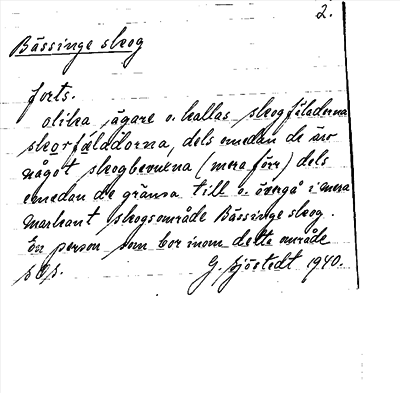 2.
Bässinge skog
forts.
olika ägare o. kallas skogfäladerna
skogfäladorna, dels emedan de äro
något skogbevuxna (mera förr) dels
emedan de gränsa till o. övergå i mera
markant skogsområde Bässinge skog.
En person som bor inom detta område
G. Sjöstedt 1940.